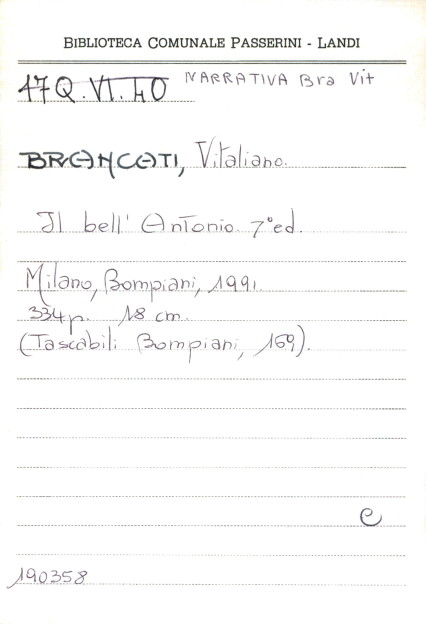 BIBLIOTECA COMUNALE PASSERINI - LANDI
47 Q. VI. 40 NARRATIVA Bra Vit
BRANCATI, Vitaliano.
Il bell' Antonio. 7ª ed.
Milano, Bompiani, 1991.
334 p. 18 cm.
(Tascabili Bompiani, 169).
C
190358